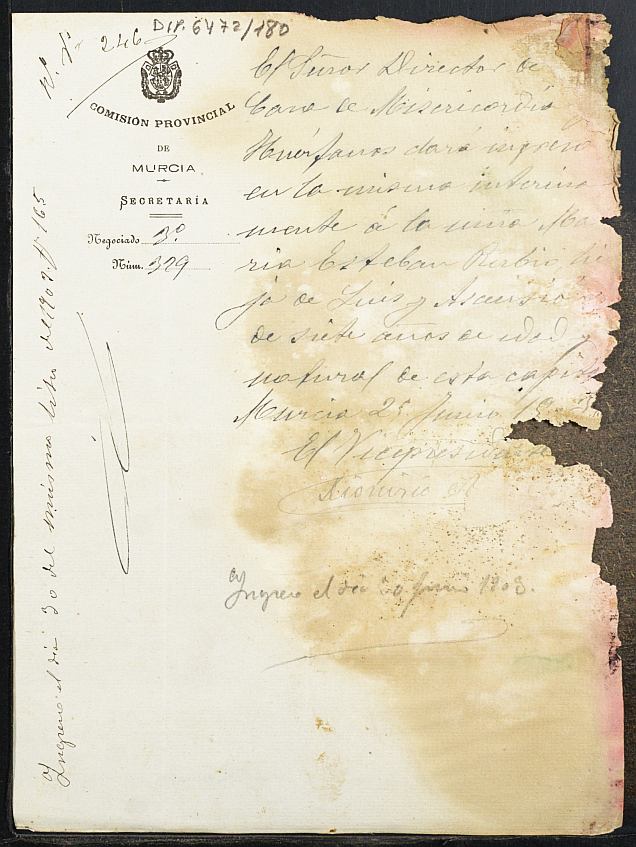 DIP. 6472/180
N.º 246
COMISIÓN PROVINCIAL
DE
MURCIA
SECRETARÍA
Negociado 3.º
Núm. 329
El Señor Director de
Casa de Misericordia y
Huérfanos dará ingreso
en la misma interina
mente á la niña Ma
ria Esteban Rubio, hi
ja de Luis y Ascensión
de siete años de edad y
natural de esta capi
Murcia 25 Junio 190
El Vicepresidente
Dionisio
Ingreso el dia 30 Junio 1903.
Ingreso el dia 30 del mismo libro de 1903 nº 165